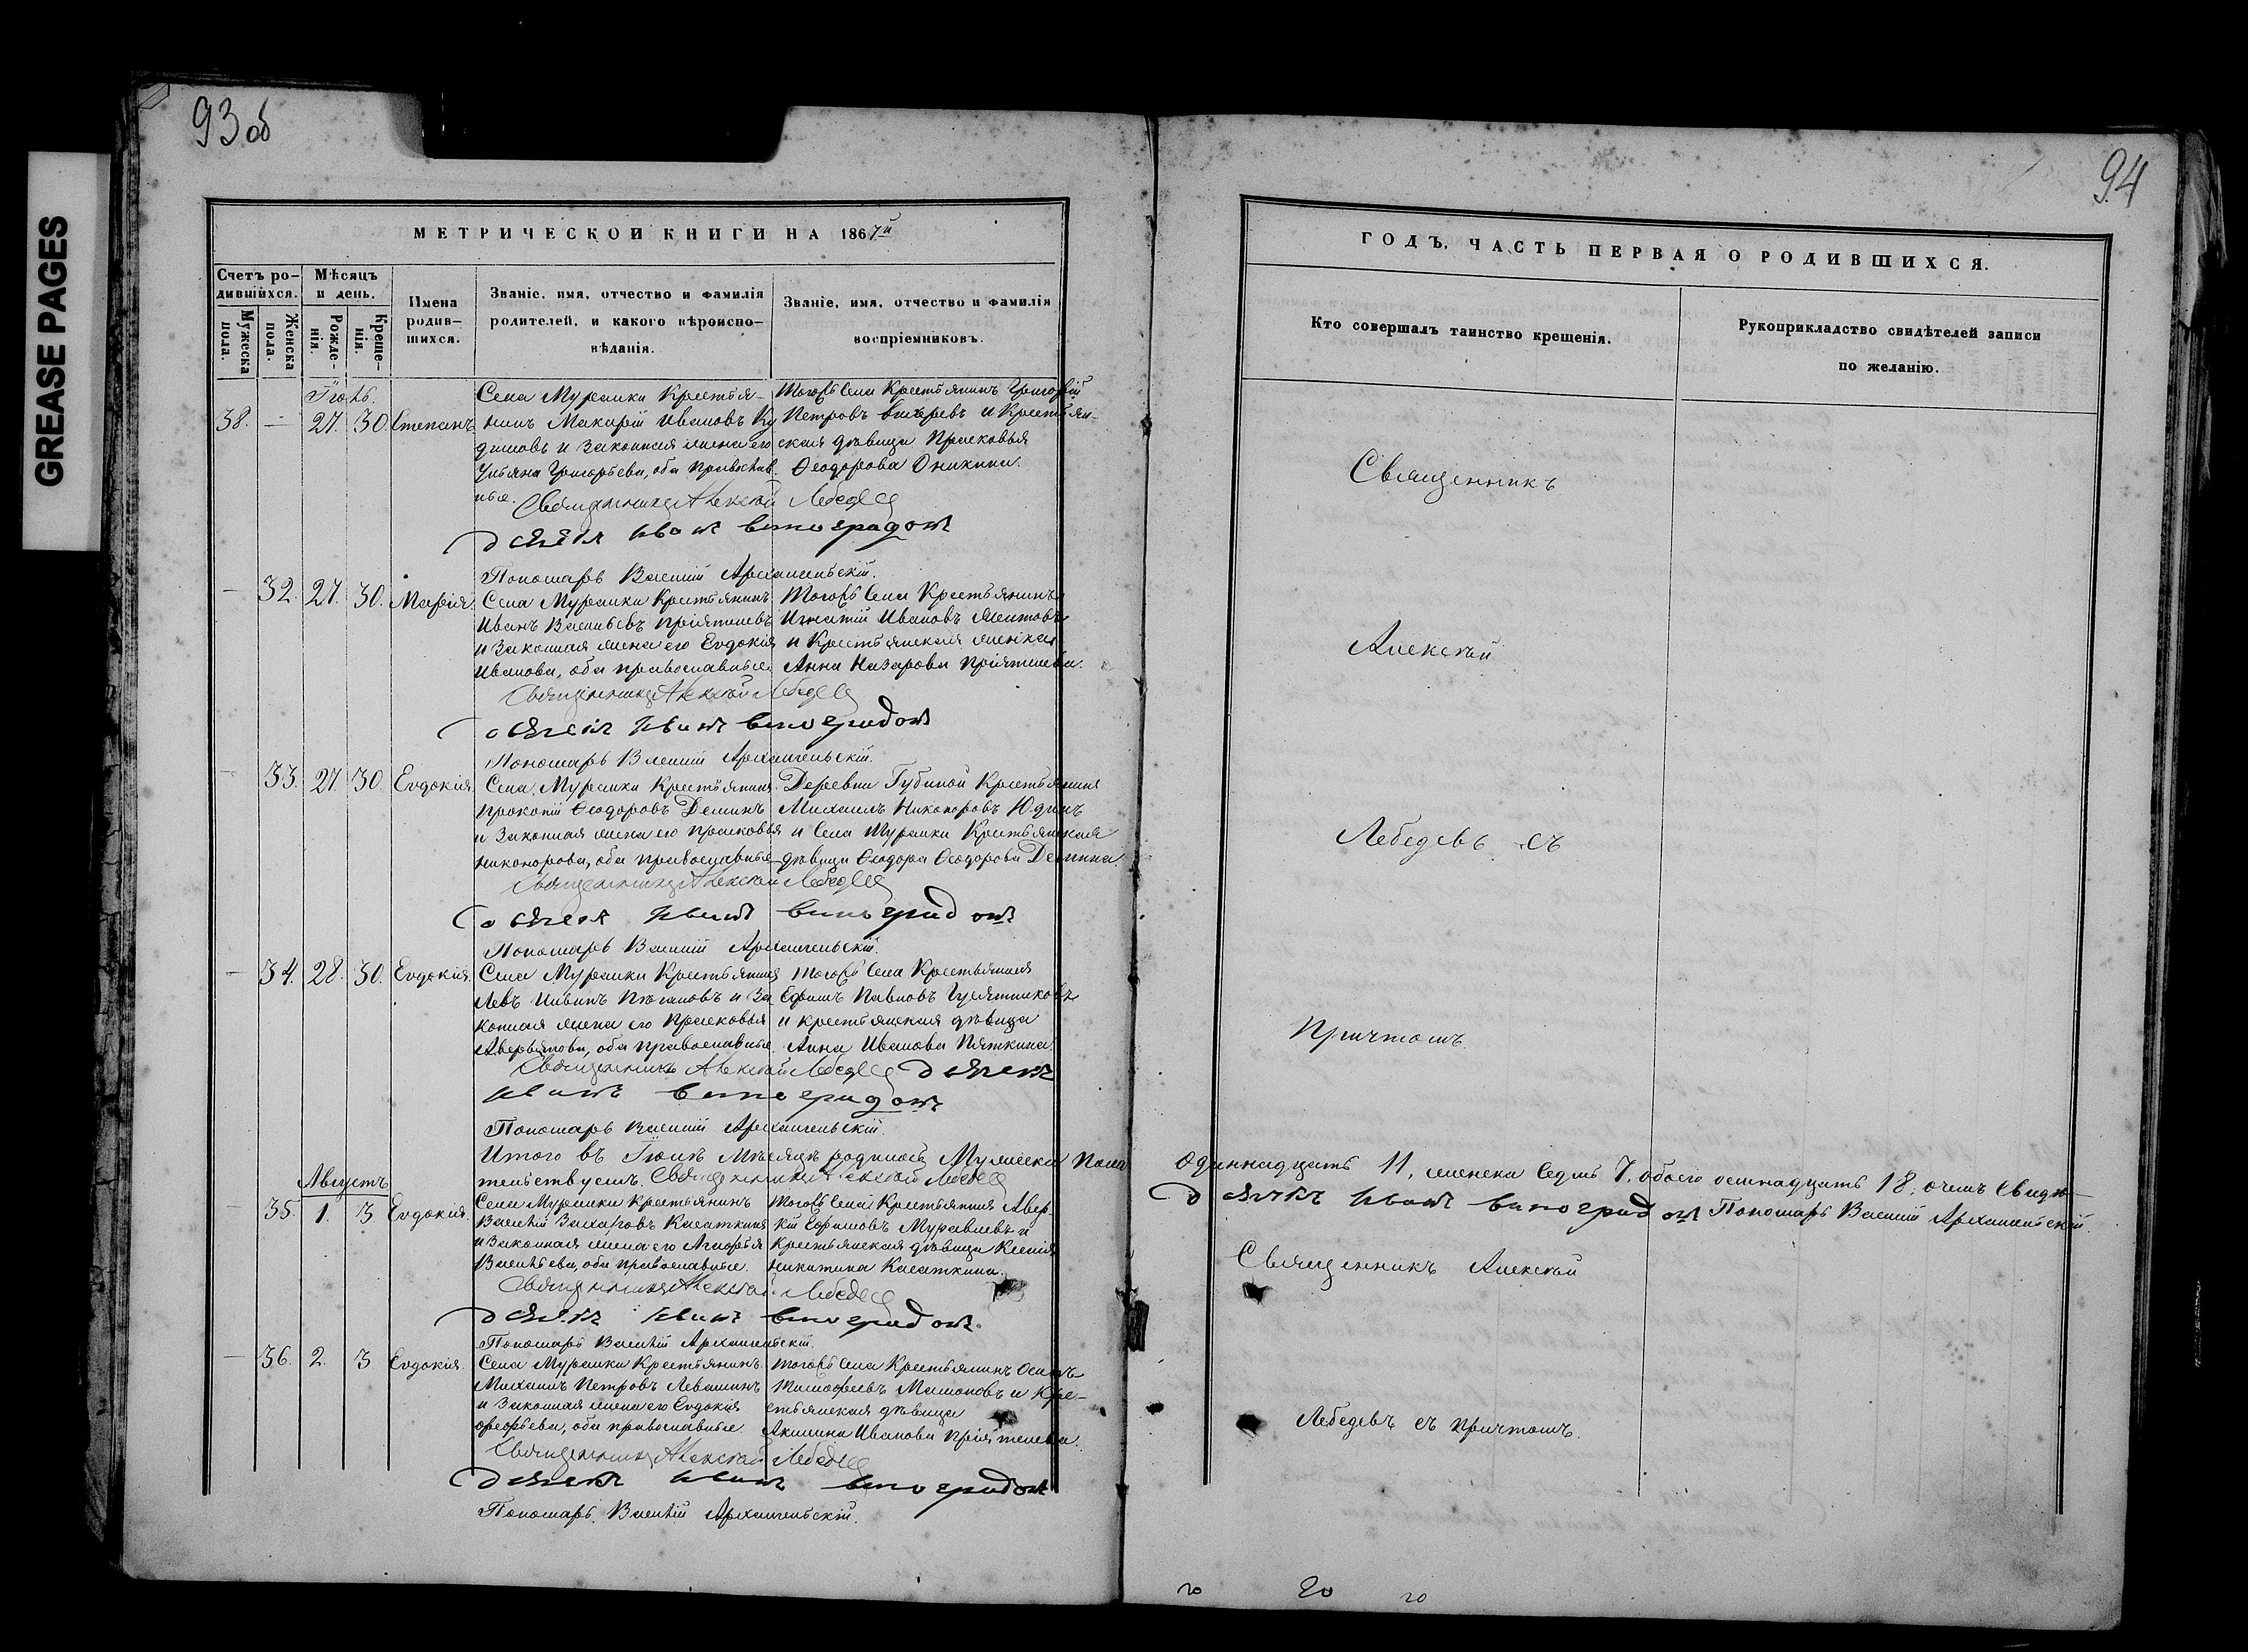 GREASE PAGES
93 об
94
МЕТРИЧЕСКОЙ КНИГИ НА 1867й
Счетъ ро-
дившихся.
Мѣсяцъ
и день.
Мужеска
пола.
Женска
пола.
Рожде-
нія.
Креще-
нія.
Имена
родив-
шихся.
Званіе, имя, отчество и фамилія
родителей, и какого вѣроиспо-
вѣданія.
Званіе, имя, отчество и фамилія
воспріемниковъ.
Іюль.
38. — 27. 30. Степанъ
Села Мурашки Крестья-
нинъ Макарій Ивановъ Ку
димовъ и Законная жена его
Ульяна Григорьева, оба православ-
ные.
Тогожъ Села Крестьянинъ Григорій
Петровъ и Крестьян-
ская дѣвица Прасковья
Ѳеодорова Оникина.
Священникъ Алексѣй Лебедевъ
дьячекъ Иванъ Виноградовъ
Пономарь Василій Архангельскій.
— 32. 27. 30. Марія.
Села Мурашки Крестьянинъ
Иванъ Васильевъ Пріятелевъ
и Законная жена его Евдокія
Иванова, оба православные.
Тогожъ Села Крестьянинъ
Игнатій Ивановъ
и Крестьянская женка
Анна Назарова Пріятелева.
Священникъ Алексѣй Лебедевъ
дьячекъ Иванъ Виноградовъ
Пономарь Василій Архангельскій.
— 33. 27. 30. Евдокія.
Села Мурашки Крестьянинъ
Прокопій Ѳеодоровъ Деминъ
и Законная жена его Прасковья
Никонорова, оба православные
Деревни Губиной Крестьянинъ
Михаилъ Никоноровъ Юдинъ
и Села Мурашки Крестьянская
дѣвица Ѳеодора Ѳеодорова Демина.
Священникъ Алексѣй Лебедевъ
дьячекъ Иванъ Виноградовъ
Пономарь Василій Архангельскій.
— 34. 28. 30. Евдокія.
Села Мурашки Крестьянинъ
Левъ и За
конная жена его Прасковья
Аверьянова, оба православные.
Тогожъ Села Крестьянинъ
Ефимъ Павловъ Гусятниковъ
и крестьянская дѣвица
Анна Иванова Пяткина.
Священникъ Алексѣй Лебедевъ дьячекъ
Иванъ Виноградовъ
Пономарь Василій Архангельскій.
Итого въ Іюлѣ Мѣсяцѣ родилось Мужеска Пола
тельствуемъ. Священникъ Алексѣй Лебедевъ
Августъ
— 35. 1. 3 Евдокія.
Села Мурашки Крестьянинъ
Василій Захаровъ Касаткинъ
и Законная жена его Агафья
Васильева, оба православные.
Тогожъ Села Крестьянинъ Авер-
кій Ефимовъ Муравлевъ и
Крестьянская дѣвица Ксенія
Никитина Касаткина.
Священникъ Алексѣй Лебедевъ
дьячекъ Иванъ Виноградовъ.
Пономарь Василій Архангельскій.
— 36. 2. 3 Евдокія.
Села Мурашки Крестьянинъ
Михаилъ Петровъ Левашинъ
и Законная жена его Евдокія
оба православные
Тогожъ Села Крестьянинъ Осипъ
Тимофеевъ и Кре-
стьянская дѣвица
Акилина Иванова Пріятелева.
Священникъ Алексѣй Лебедевъ
дьячекъ Иванъ Виноградовъ
Пономарь Василій Архангельскій.
ГОДЪ, ЧАСТЬ ПЕРВАЯ О РОДИВШИХСЯ.
Кто совершалъ таинство крещенія.
Рукоприкладство свидѣтелей записи
по желанію.
Священникъ
Алексѣй
Лебедевъ съ
Причтомъ.
Одиннадцать 11, женска Седмь 7, обоего осмнадцать 18; очемъ Свидѣ-
дьячекъ Иванъ Виноградовъ Пономарь Василій Архангельскій.
Священникъ Алексѣй
Лебедевъ съ причтомъ.